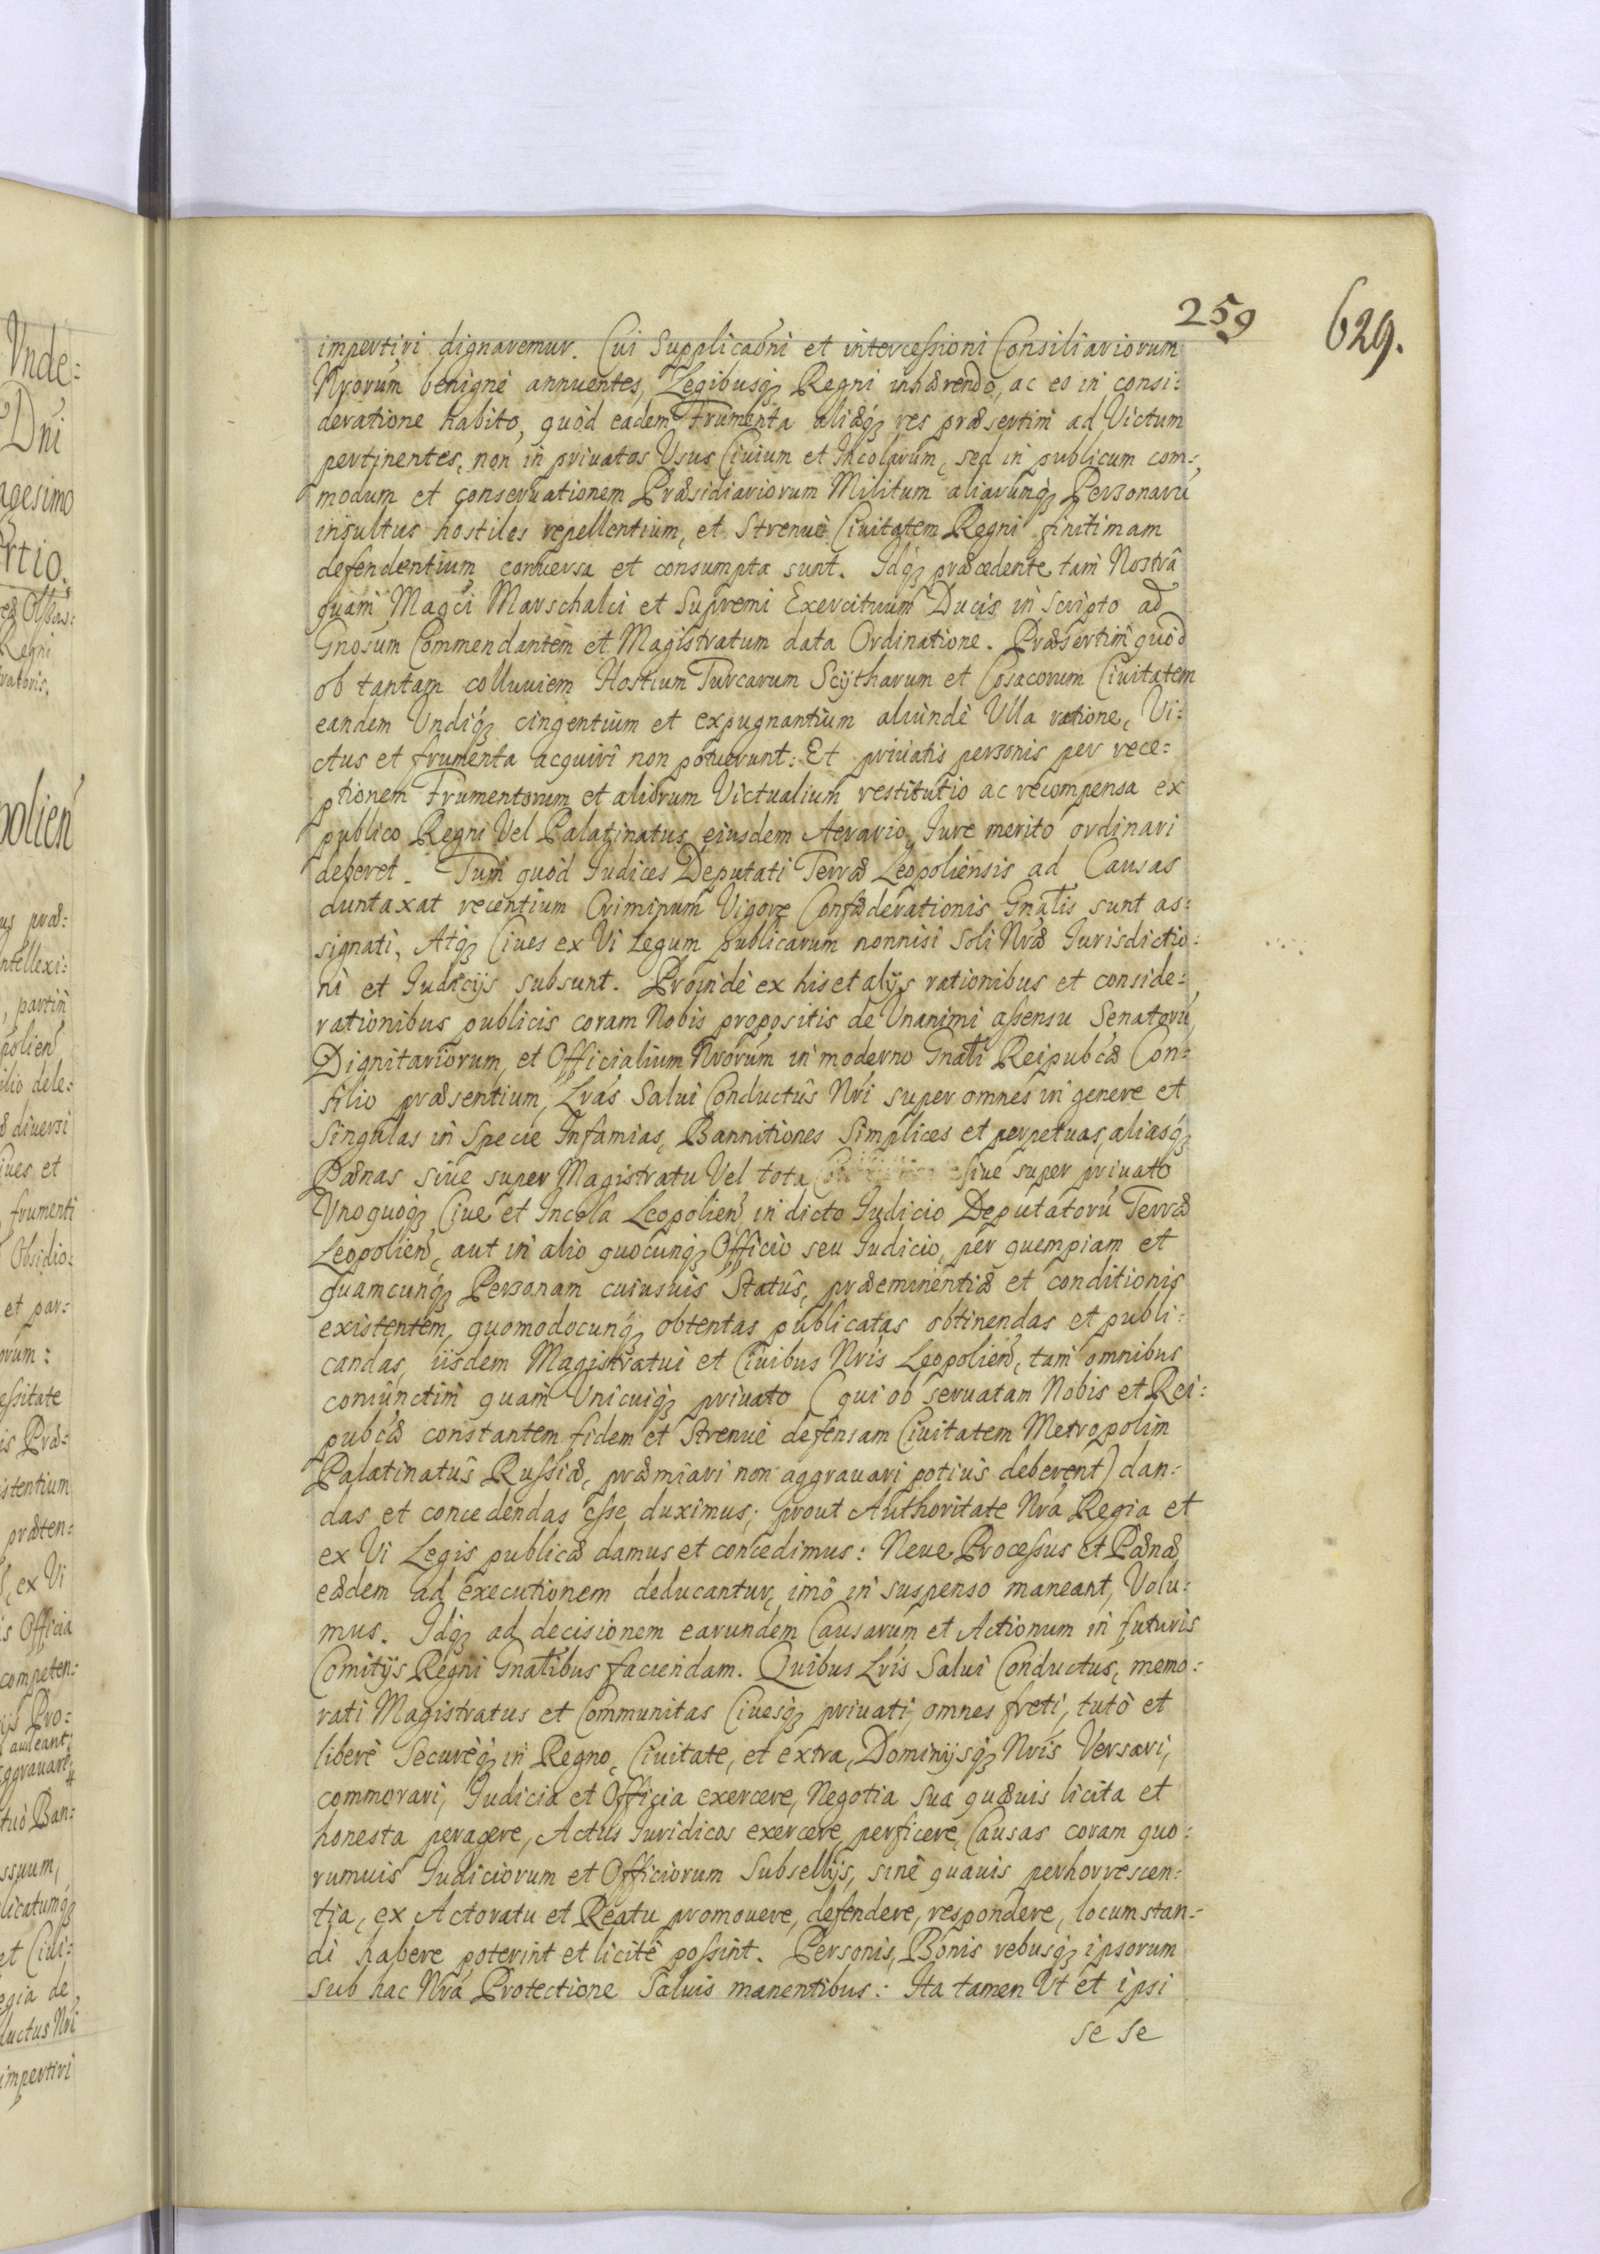 259
629.
impertiri dignaremur. Cui Supplicaõni et intercessioni Consiliariorum
Nrorum benignè annuentes, Legibusq̃ Regni inhærendo, ac eo in consi:
deratione habito, quòd eadem Frumenta aliæq̃ res præsertim ad Victum
pertinentes, non in priuatos Usus Ciuium et Incolarum, sed in publicum com:
modum et conseruationem Præsidiariorum Militum aliarumq̃ Personarũ
insultus hostiles repellentium, et Strenuè Ciuitatem Regni finitimam
defendentium conuersa et consumpta sunt. Idq̃ præcedente tam Nostrâ
quàm Magci Marschalci et Supremi Exercituum Ducis in scripto ad
Gnosum Commendantem et Magistratum data Ordinatione. Præsertim quòd
ob tantam colluuiem Hostium Turcarum Scÿtharum et Cosacorum Ciuitatem
eandem Undiq̃ cingentium et expugnantium aliundè Ulla ratione, Vi:
ctus et frumenta acquiri non potuerunt: Et priuatis personis per rece:
ptionem Frumentorum et aliorum Victualium restitutio ac recompensa ex
publico Regni Vel Palatinatus eiusdem Aerario, Iure merito ordinari
deberet. Tum quòd Iudices Deputati Terræ Leopoliensis ad Causas
duntaxat recentium Criminum Vigore Confæderationis Gnalis sunt as:
signati, Atq̃ Ciues ex Vi Legum publicarum nonnisi soli Nræ Iurisdictio:
ni et Iudicÿs subsunt. Proindè ex his et alÿs rationibus et conside:
rationibus publicis coram Nobis propositis de Unanimi assensu Senatorũ,
Dignitariorum, et Officialium Nrorum in moderno Gnali Reipubcæ Con:
silio præsentium, Lrás Salui Conductûs Nri super omnes in genere et
Singulas in Specie Infamias, Bannitiones Simplices et perpetuas, aliasq̃
Pænas siue super Magistratu Vel tota siue super priuato
Unoquoq̃ Ciue et Incola Leopolien̄, in dicto Iudicio Deputatorũ Terræ
Leopolien̄, aut in alio quocunq̃ Officio seu Iudicio, per quempiam et
quamcunq̃ Personam cuiusuis Statûs, præeminentiæ et conditionis
existentem, quomodocunq̃ obtentas publicatas obtinendas et publi:
candas, iisdem Magistratui et Ciuibus Nris Leopolien̄, tam omnibus
coniunctim quàm Unicuiq̃ priuato (qui ob seruatam Nobis et Rei:
pubcæ constantem fidem et Strenuè defensam Ciuitatem Metropolim
Palatinatûs Russiæ, præmiari non aggrauari potiùs deberent) dan:
das et concedendas esse duximus; prout Authoritate Nrá Regia et
ex Vi Legis publicæ damus et concedimus: Neue Processus et Pænæ
eædem ad executionem deducantur, imò in suspenso maneant, Volu:
mus. Idq̃ ad decisionem earundem Causarum et Actionum in futuris
Comitÿs Regni Gnalibus faciendam. Quibus Lris Salui Conductus, memo:
rati Magistratus et Communitas Ciuesq̃ priuati, omnes freti, tutò et
liberè Securèq̃ in Regno, Ciuitate, et extra, Dominÿsq̃ Nris Versari,
commorari, Iudicia et Officia exercere, Negotia Sua quæuis licita et
honesta peragere, Actus Iuridicos exercere, perficere, Causas coram quo:
rumuis Iudiciorum et Officiorum Subsellÿs, sinè quauis perhorrescen:
tia, ex Actoratu et Reatu promouere, defendere, respondere, locum stan:
di habere poterint et licitè possint. Personis, Bonis rebusq̃ ipsorum
sub hac Nrá Protectione Saluis manentibus: Ita tamen Ut et ipsi
se se